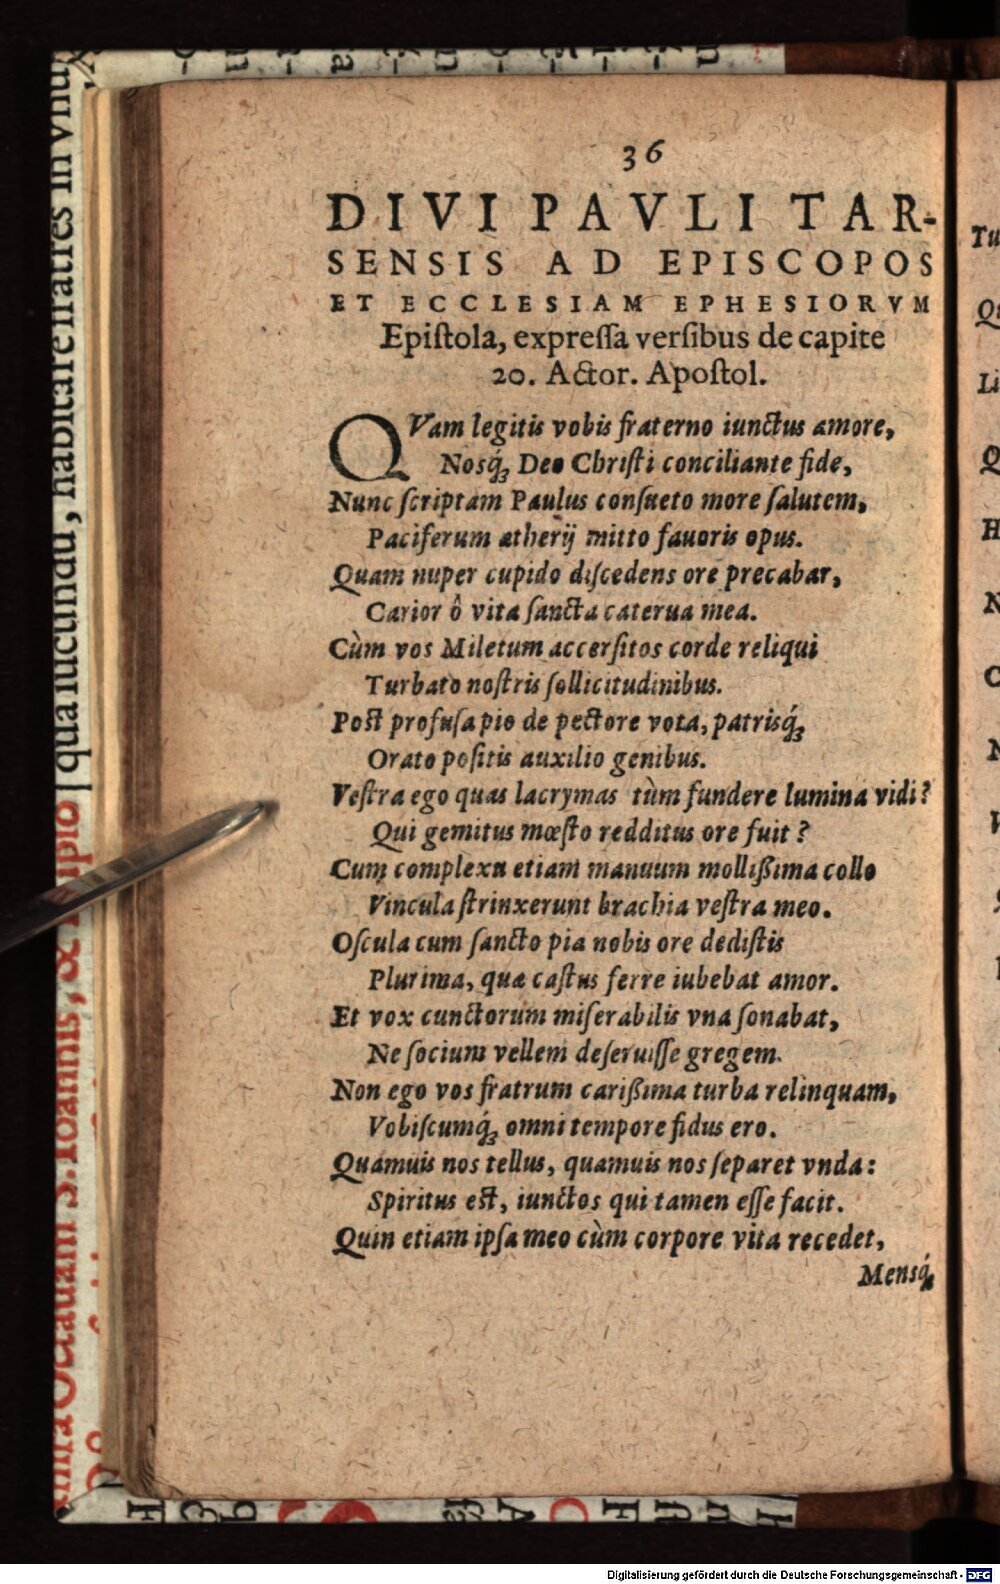 36
DIVI PAVLI TAR-
SENSIS AD EPISCOPOS
ET ECCLESIAM EPHESIORVM
Epiſtola, expreſſa verſibus de capite
20. Actor. Apoſtol.
QVam legitis vobis fraterno iunctus amore,
Nosq́ꝫ Deo Chriſti conciliante fide,
Nunc ſcriptam Paulus conſueto more ſalutem,
Paciferum ætherij mitto fauoris opus.
Quam nuper cupido diſcedens ore precabar,
Carior ô vita ſancta caterua mea.
Cùm vos Miletum accerſitos corde reliqui
Turbato noſtris ſollicitudinibus.
Poſt profuſa pio de pectore vota, patrisq́ꝫ
Orato poſitis auxilio genibus.
Veſtra ego quas lacrymas tùm fundere lumina vidi?
Qui gemitus mœſto redditus ore fuit?
Cum complexu etiam manuum mollißima collo
Vincula ſtrinxerunt brachia veſtra meo.
Oſcula cum ſancto pia nobis ore dediſtis
Plurima, quæ caſtus ferre iubebat amor.
Et vox cunctorum miſerabilis vna ſonabat,
Ne ſocium vellem deſeruiſſe gregem.
Non ego vos fratrum carißima turba relinquam,
Vobiſcumq́ꝫ omni tempore fidus ero.
Quamuis nos tellus, quamuis nos ſeparet vnda:
Spiritus eſt, iunctos qui tamen eſſe facit.
Quin etiam ipſa meo cùm corpore vita recedet,
Mensq́ꝫ
Digitalisierung gefördert durch die Deutsche Forschungsgemeinschaft - DFG